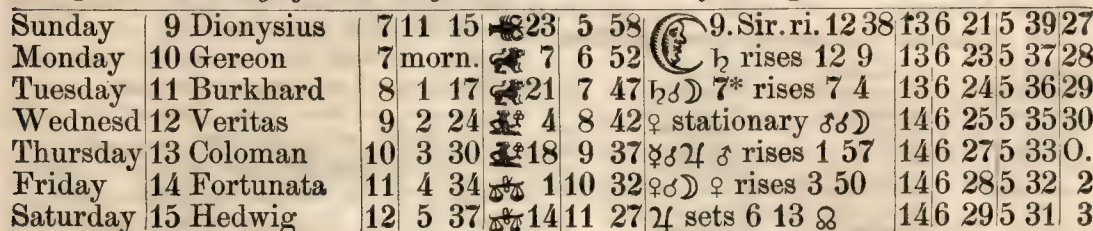 Sunday 9 Dionysius 7 11 15 23 5 58 9. Sir. ri. 12 38 13 6 21 5 39 27
Monday 10 Gereon 7 morn. 7 6 52 ♄ rises 12 9 13 6 23 5 37 28
Tuesday 11 Burkhard 8 1 17 21 7 47 ♄☌☽ 7* rises 7 4 13 6 24 5 36 29
Wednesd 12 Veritas 9 2 24 4 8 42 ♀ stationary ♂☌☽ 14 6 25 5 35 30
Thursday 13 Coloman 10 3 30 18 9 37 ☿☌♃ ♂ rises 1 57 14 6 27 5 33 O.
Friday 14 Fortunata 11 4 34 ♎ 1 10 32 ♀☌☽ ♀ rises 3 50 14 6 28 5 32 2
Saturday 15 Hedwig 12 5 37 ♎ 14 11 27 ♃ sets 6 13 ☊ 14 6 29 5 31 3